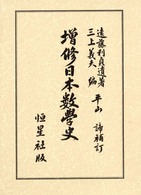 遠藤利貞遺著
三上義夫編
平山諦補訂
增修日本數學史
恒星社版